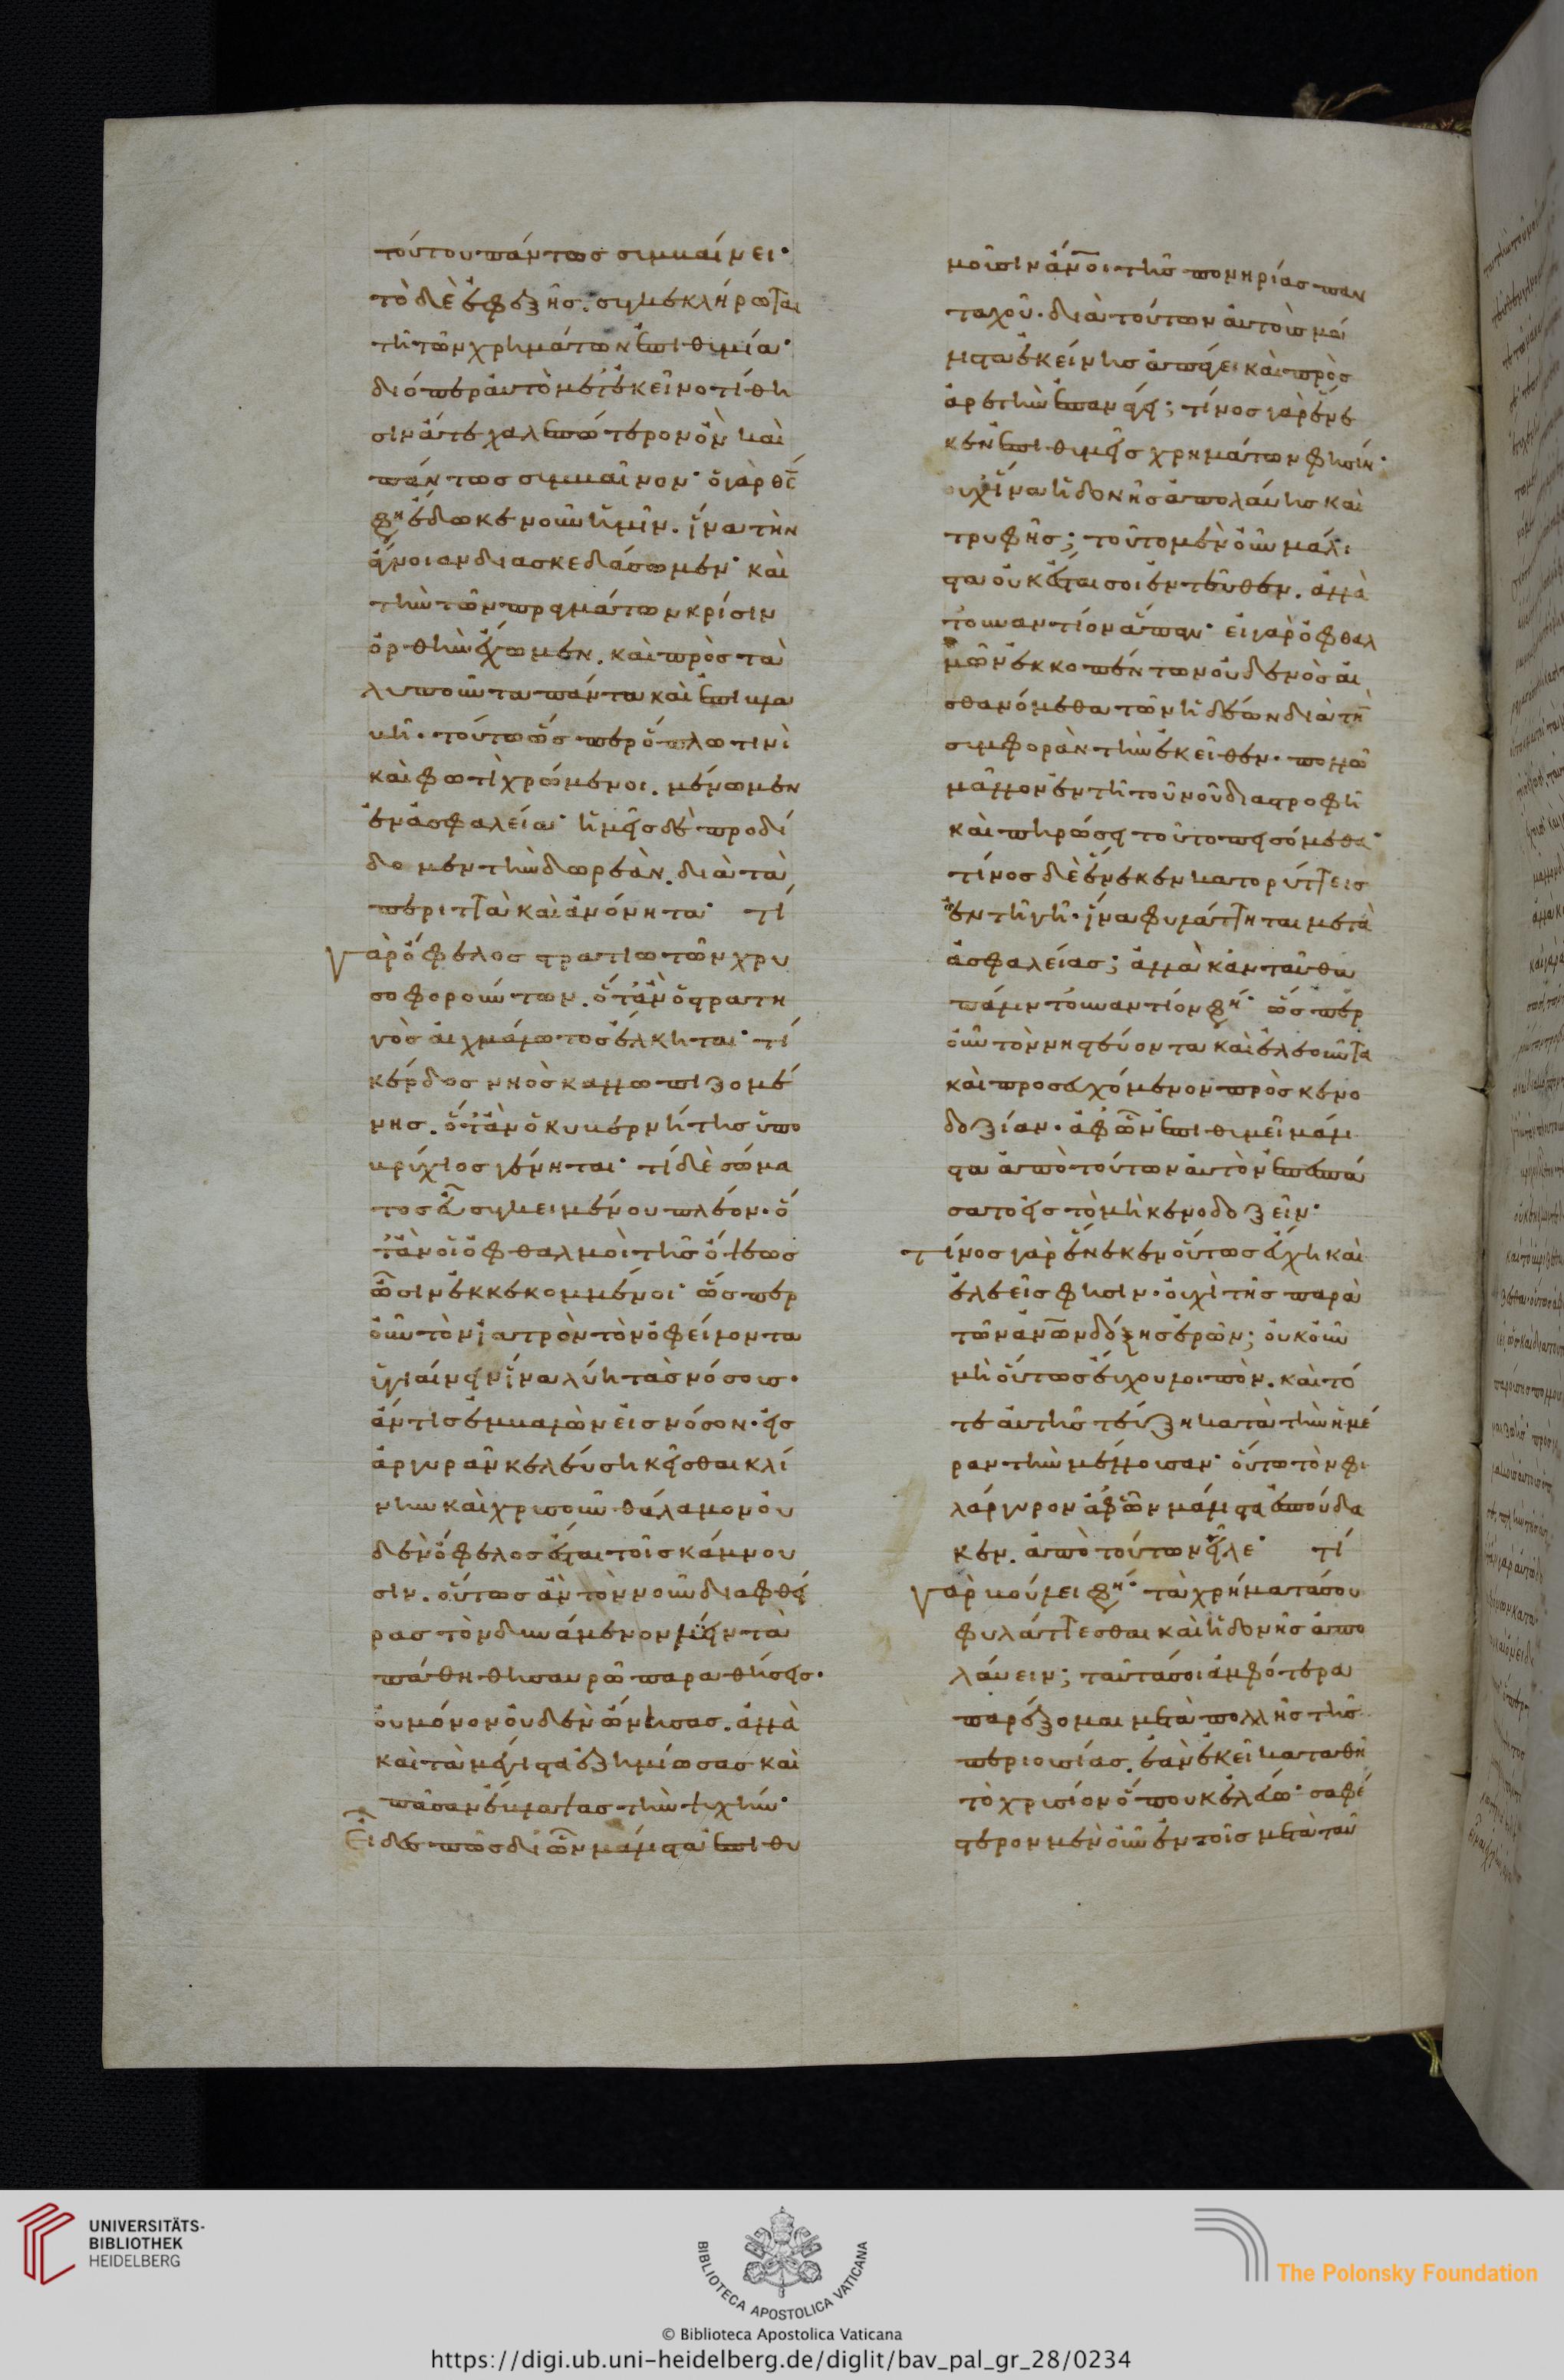 τούτου πάντως συμβαίνει·
τὸ δὲ ἐφεξῆς. συνεκλήρωται
τῆ τῶν χρημάτων ἐπιθυμία·
διόπερ αὐτὸ μετ' ἐκεῖνο τίθη
σιν ἅτε χαλεπώτερον ὂν καὶ
πάντως συμβαῖνον· ὁ γὰρ θς
φη ἔδωκε νοῦν ἡμῖν. ἵνα τὴν
ἄνοιαν διασκεδάσωμεν· καὶ
τὴν τῶν πραγμάτων κρίσιν
ὀρθὴν ἔχωμεν. καὶ πρὸς τὰ
λυποῦντα πάντα καὶ ἐπιβλα
βῆ. τούτω ὥσπερ ὅπλω τινὶ
καὶ φωτὶ χρώμενοι. μένωμεν
ἐν ἀσφαλεία· ἡμεῖς δὲ προδί
δομεν τὴν δωρεὰν. διὰ τὰ
περιττὰ καὶ ἀνόνητα· τί
γὰρ ὄφελος στρατιωτῶν χρυ
σοφορούντων. ὅτ' ἂν ὁ στρατη
γὸς αἰχμάλωτος ἕλκηται· τί
κέρδος νηὸς καλλωπιζομέ
νης. ὅτ' ἂν ὁ κυβερνήτης ὑπο
βρύχιος γένηται· τί δὲ σώμα
τος εὖ συγκειμένου πλέον. ὅ
τ' ἂν οἱ ὀφθαλμοὶ τῆς ὄψεως
ὦσιν ἐκκεκομμένοι· ὥσπερ
οὖν τὸν ἰατρὸν τὸν ὀφείλοντα
ὑγιαίνειν ἵνα λύη τὰς νόσους.
ἄν τις ἐμβαλὼν εἰς νόσον. εἰς
ἀργυρᾶν κελεύση κεῖσθαι κλί
νην καὶ χρυσοῦν θάλαμον οὐ
δὲν ὄφελος ἔσται τοῖς κάμνου
σιν. οὕτως ἂν τὸν νοῦν διαφθεί
ρας τὸν δυνάμενον λύειν τὰ
πάθη θησαυρῶ παραθήσεις.
οὐ μόνον οὐδὲν ὤνησας. ἀλλὰ
καὶ τὰ μέγιστα ἐζημίωσας καὶ
πᾶσαν ἔβλαψας τὴν ψυχήν·
Εἶδες πῶς δι' ὧν μάλιστα ἐπιθυ
μοῦσιν ἄνοι τῆς πονηρίας παν
ταχοῦ. διὰ τούτων αὐτοὺς μά
λιστα ἐκείνης ἀπάγει καὶ πρὸς
ἀρετὴν ἐπανάγει; τίνος γὰρ ἕνε
κεν ἐπιθυμεῖς χρημάτων φησίν·
οὐχ ἵνα ἡδονῆς ἀπολαύης καὶ
τρυφῆς; τοῦτο μὲν οὖν μάλι
στα οὐκ ἔσται σοι ἐντεῦθεν. ἀλλὰ
τοὐναντίον ἅπαν· εἰ γὰρ ὀφθαλ
μῶν ἐκκοπέντων οὐδενὸς αἰ
σθανόμεθα τῶν ἡδέων διὰ τὴν
συμφορὰν τὴν ἐκεῖθεν. πολλῶ
μᾶλλον ἐν τῆ τοῦ νοῦ διαστροφῆ
καὶ πηρώσει τοῦτο πεισόμεθα·
τίνος δὲ ἕνεκεν κατορύττεις
ἐν τῆ γῆ. ἵνα φυλάττηται μετὰ
ἀσφαλείας; ἀλλὰ κἀνταῦθα
πάλιν τοὐναντίον φη· ὥσπερ
οὖν τὸν νηστεύοντα καὶ ἐλεοῦντα
καὶ προσευχόμενον πρὸς κενο
δοξίαν. ἀφ' ὧν ἐπιθυμεῖ μάλι
στα ἀπὸ τούτων αὐτὸν ἐπεσπά
σατο εἰς τὸ μὴ κενοδοξεῖν·
τίνος γὰρ ἕνεκεν οὕτως εὔχη καὶ
ἐλεεῖς φησιν. οὐχὶ τῆς παρὰ
τῶν ἀνων δόξης ἐρῶν; οὐκοῦν
μὴ οὕτως εὔχου λοιπὸν. καὶ τό
τε αὐτῆς τεύξη κατὰ τὴν ἡμέ
ραν τὴν μέλλουσαν· οὕτω τὸν φι
λάργυρον ἀφ' ὧν μάλιστα ἐσπούδα
κεν. ἀπὸ τούτων εἷλε· τί
γὰρ βούλει φη· τὰ χρήματά σου
φυλάττεσθαι καὶ ἡδονῆς ἀπο
λαύειν; ταῦτά σοι ἀμφότερα
παρέξομαι μετὰ πολλῆς τῆς
περιουσίας. ἐὰν ἐκεῖ καταθῆ
τὸ χρυσίον ὅπου κελεύω· σαφέ
στερον μὲν οὖν ἐν τοῖς μετὰ ταῦ
UNIVERSITÄTS-
BIBLIOTHEK
HEIDELBERG
BIBLIOTECA APOSTOLICA VATICANA
The Polonsky Foundation
© Biblioteca Apostolica Vaticana
https://digi.ub.uni-heidelberg.de/diglit/bav_pal_gr_28/0234